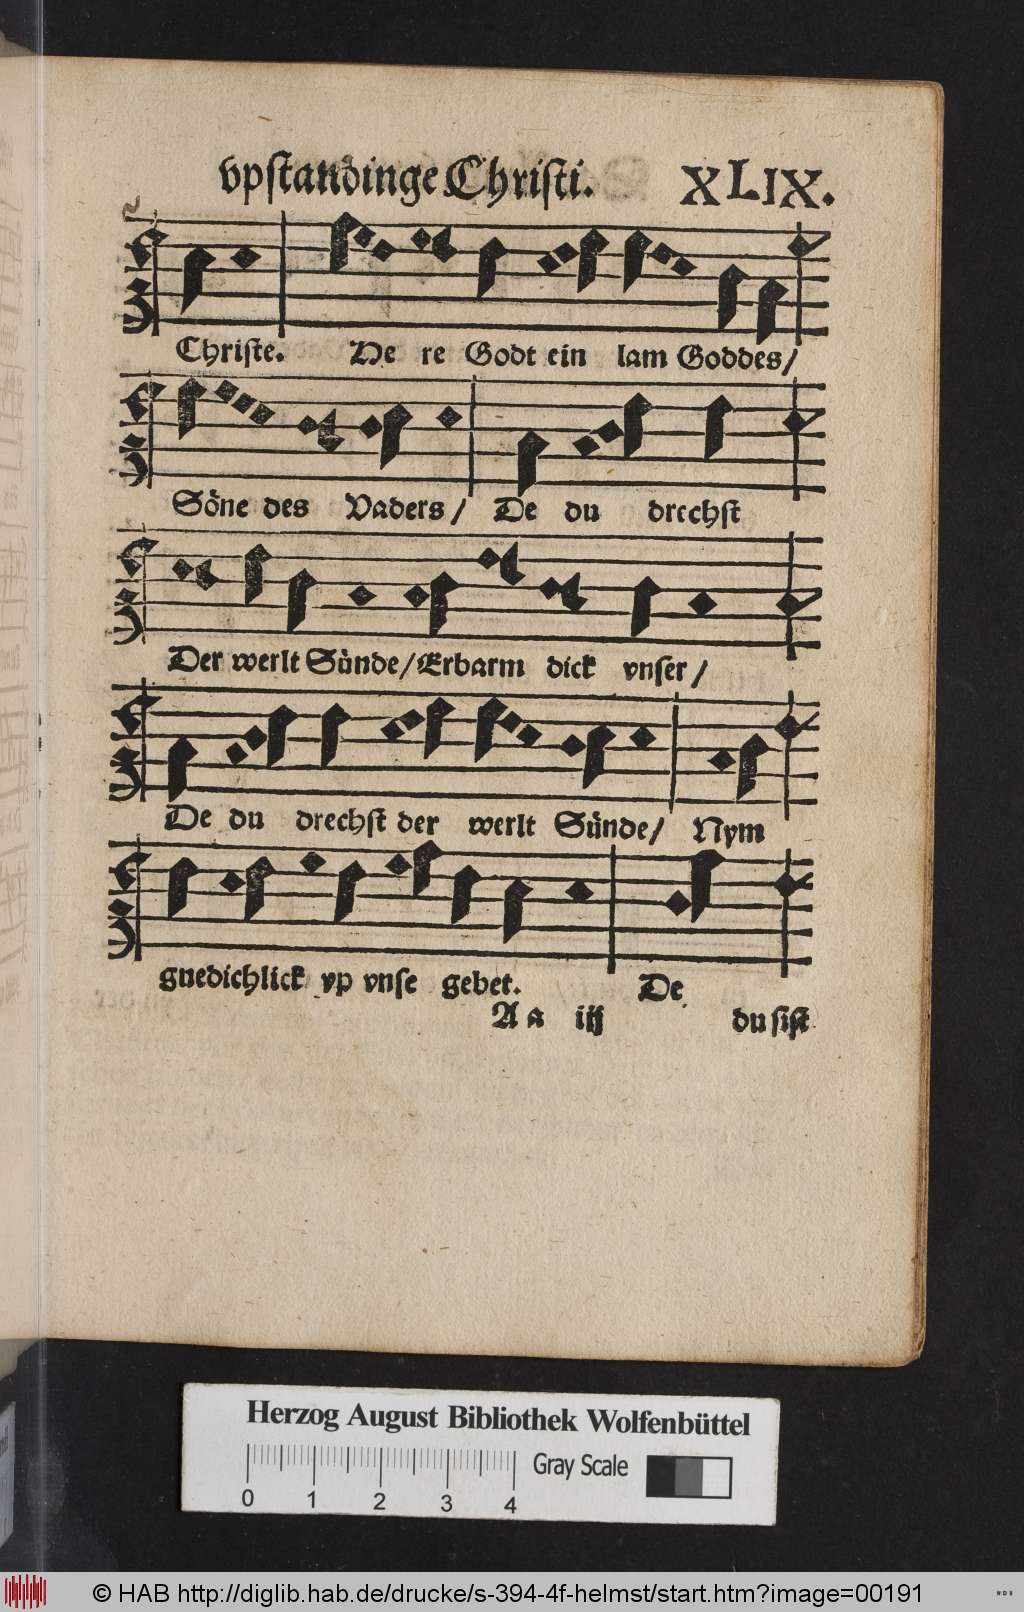 vpstandinge Christi. XLIX.
Christe. HE re Godt ein lam Goddes/
Söne des Vaders/ De du drechst
Der werlt Sünde/ Erbarm dick vnser/
De du drechst der werlt Sünde/ Nym
gnedichlick vp vnse gebet. De
A a iij du sist
Herzog August Bibliothek Wolfenbüttel
Gray Scale
0 1 2 3 4
© HAB http://diglib.hab.de/drucke/s-394-4f-helmst/start.htm?image=00191